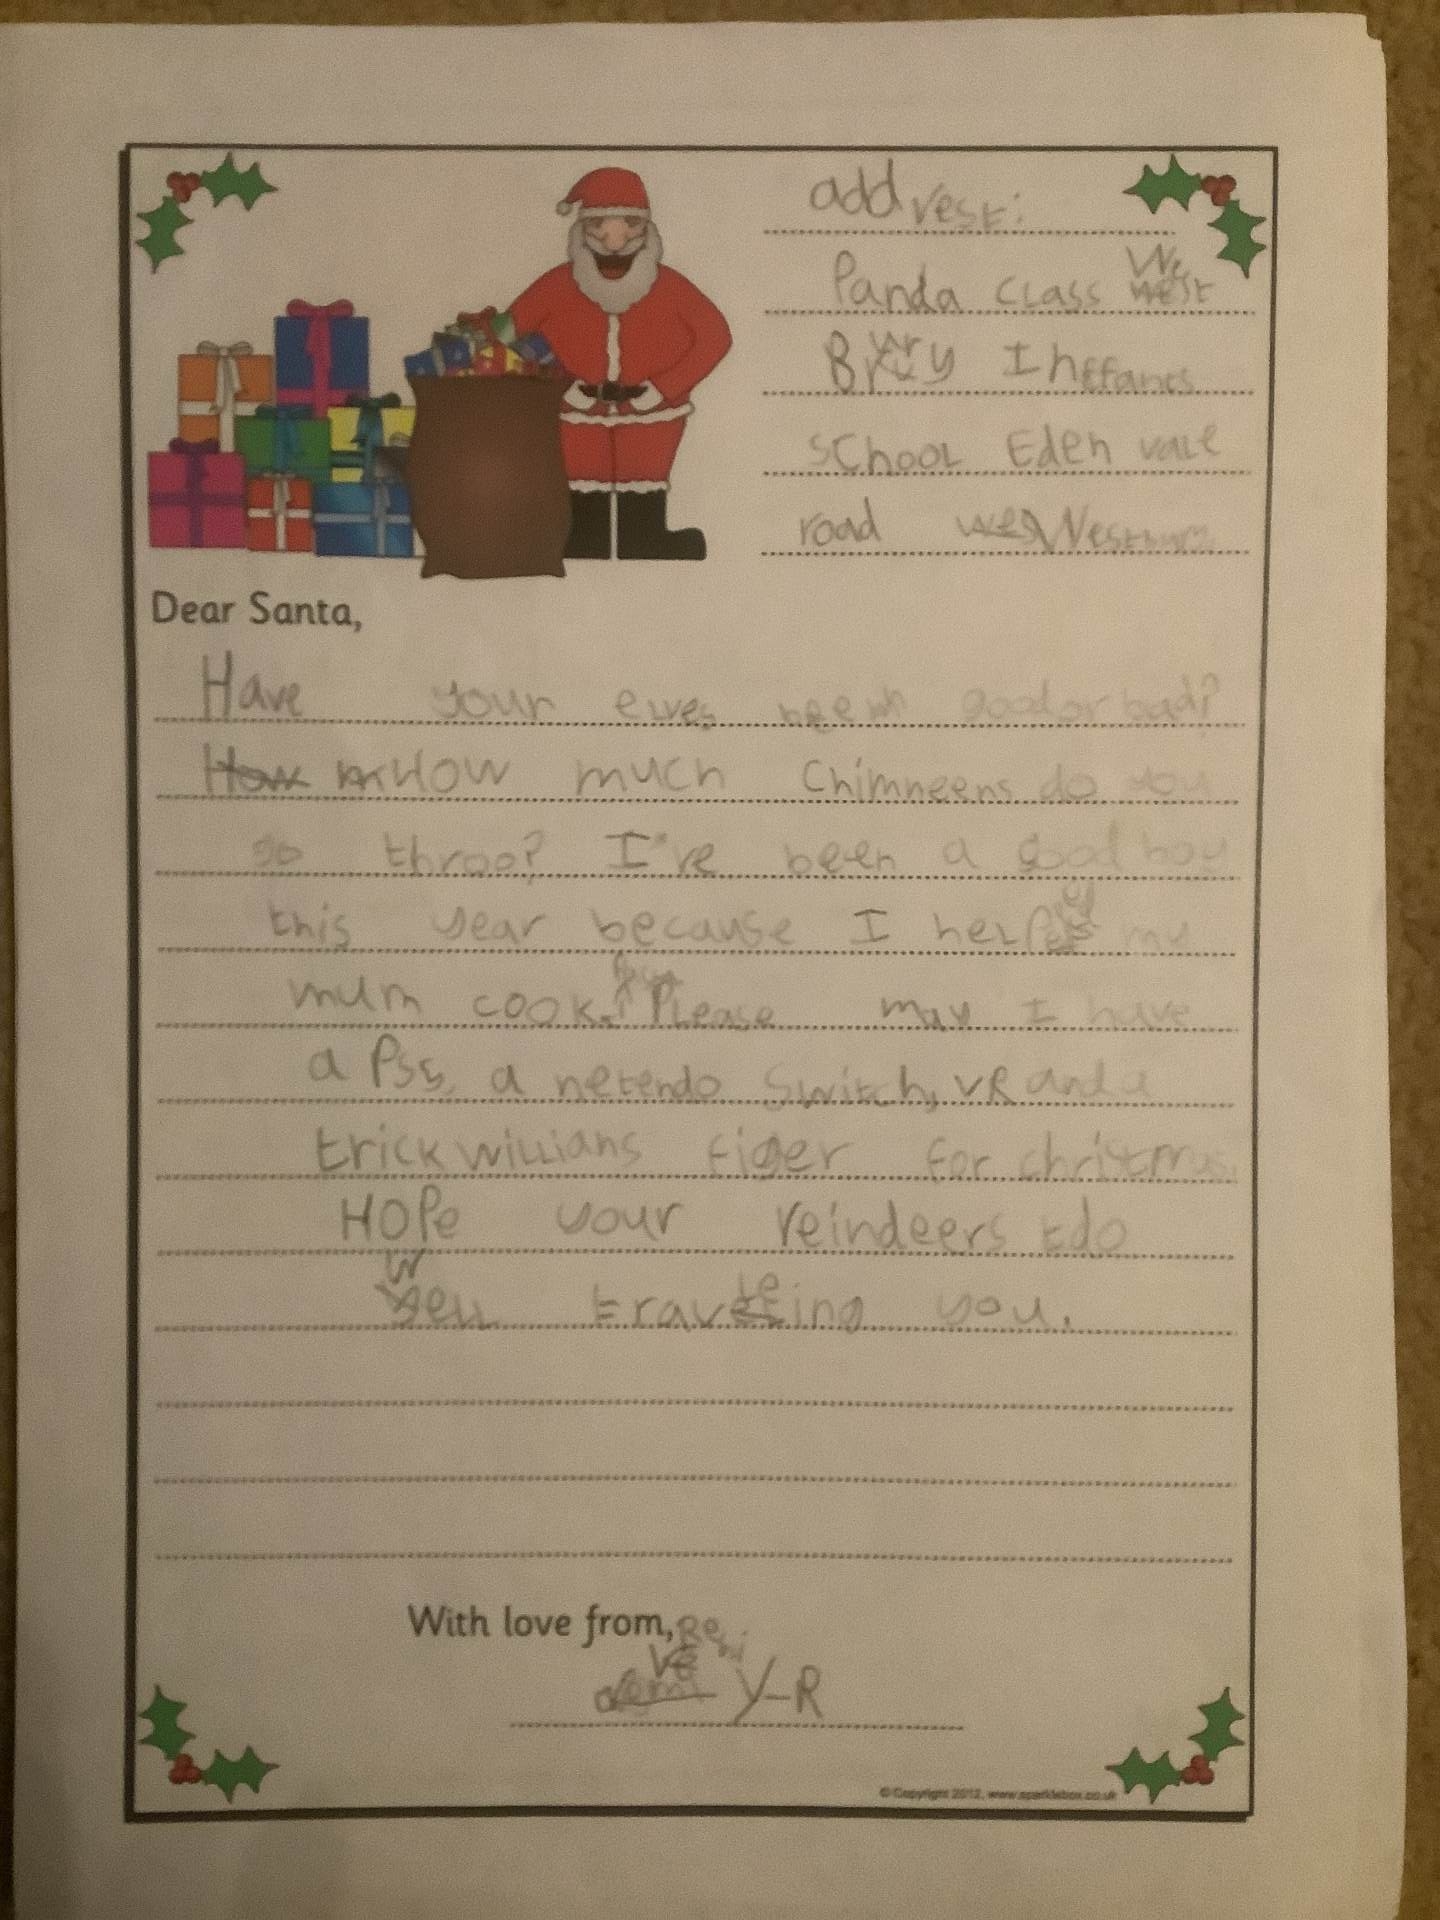 addrest:
Panda class West
Bury Inffants
school Eden vale
road Westbury
Dear Santa,
Have your elves been good or bad?
How much Chimneens do you
go throo? I've been a good boy
this year because I help my
mum cook. Please may I have
a PS5, a netendo Switch, VR and a
trick willians figer for christmas.
Hope your reindeers do
well traveling you.
With love from, Remi
Y-R
© Copyright 2012, www.sparklebox.co.uk